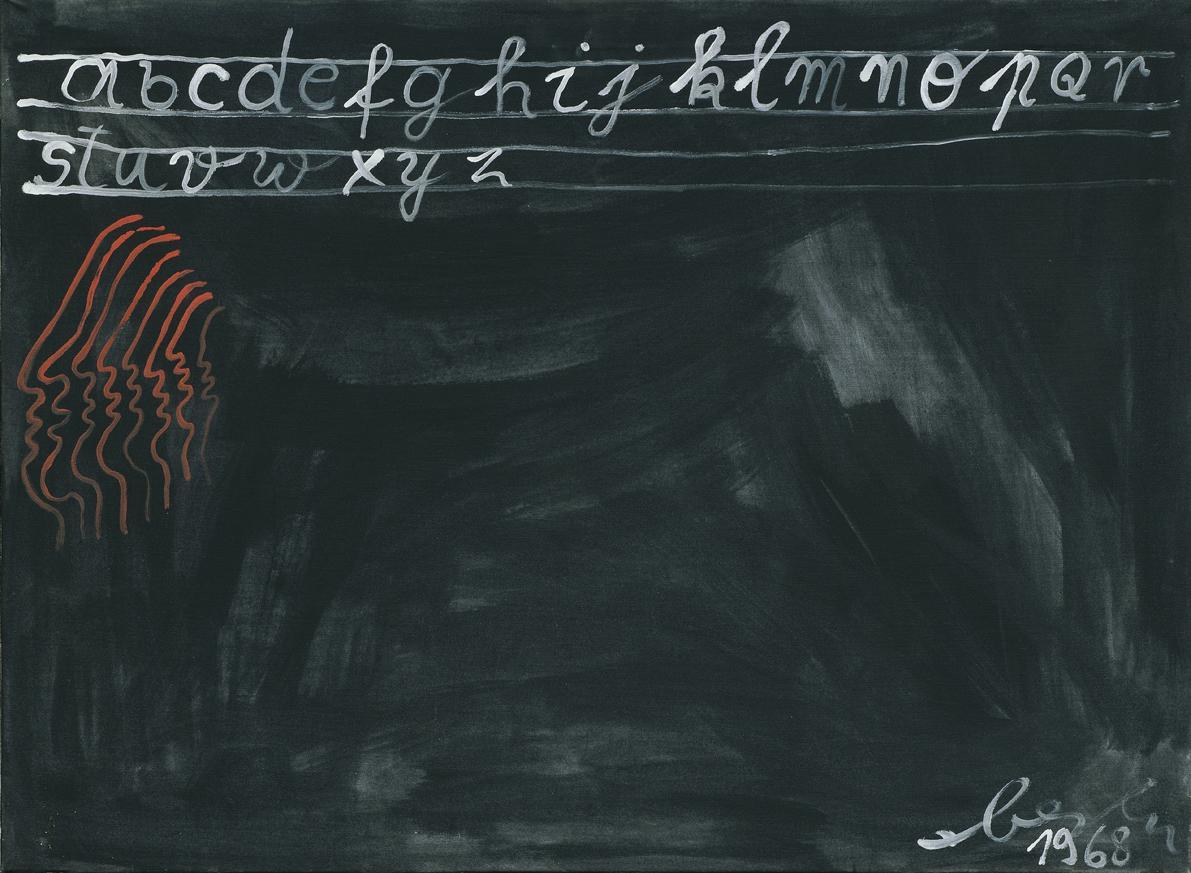 abcdefg hij klmnopqr
stuvw xyz
berlin
1968